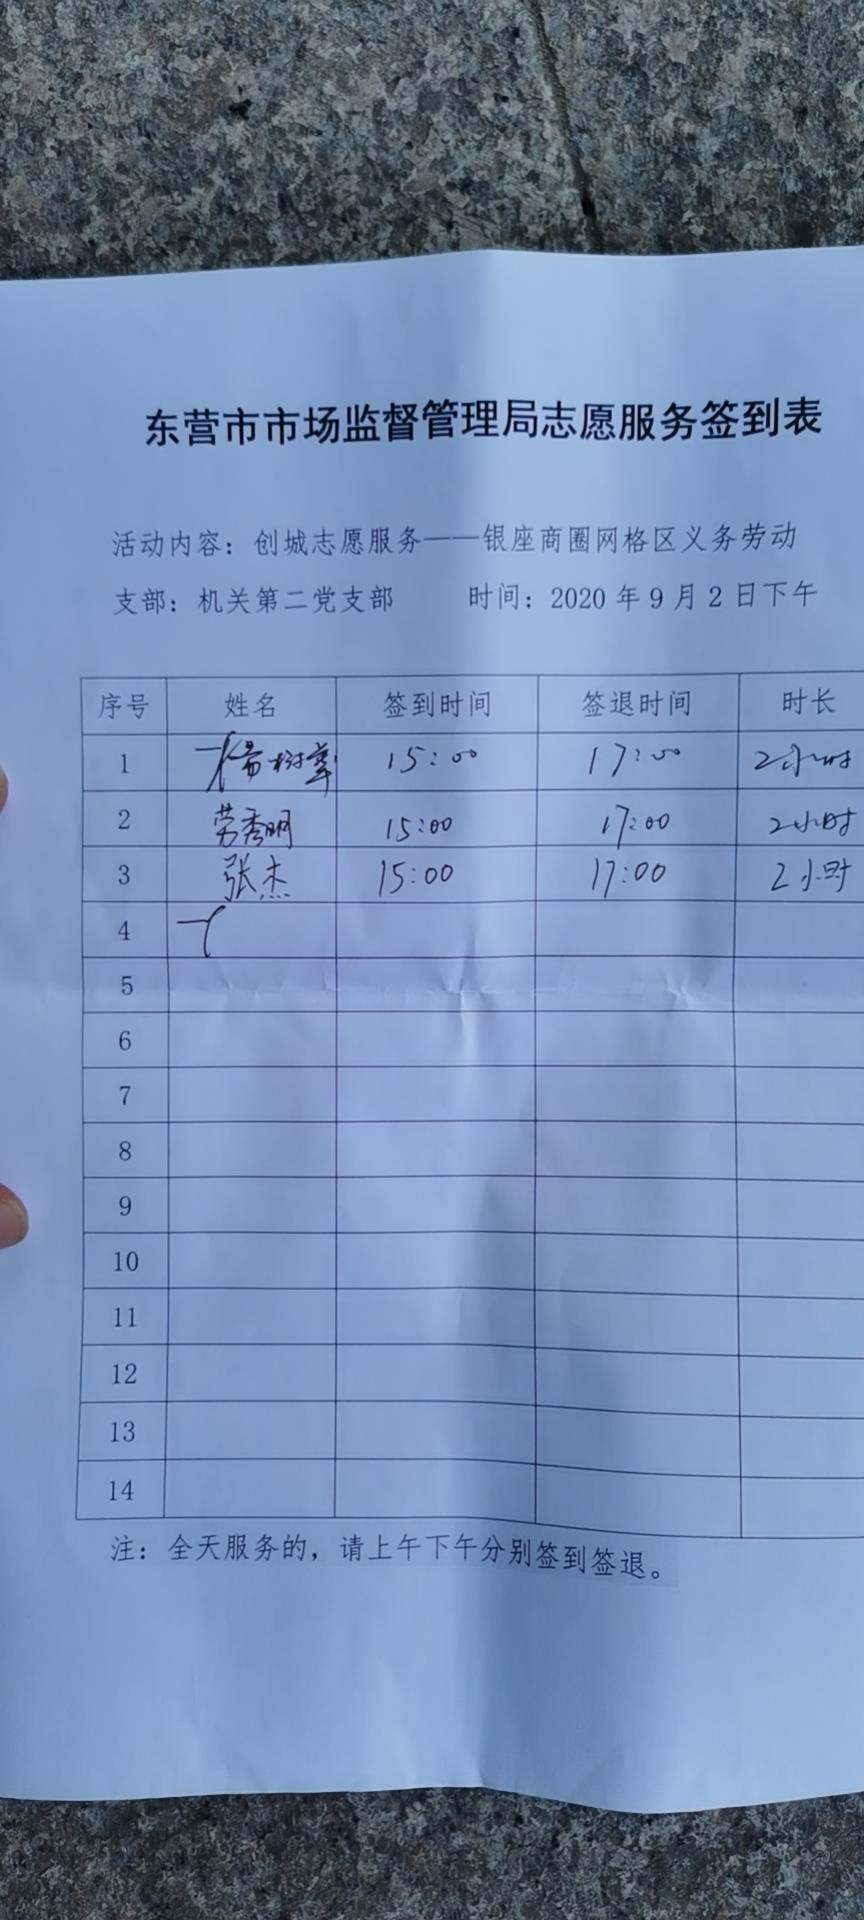 东营市市场监督管理局志愿服务签到表
活动内容：创城志愿服务——银座商圈网格区义务劳动
支部：机关第二党支部 时间：2020 年 9 月 2 日下午
序号 姓名 签到时间 签退时间 时长
1 杨树 15:00 17:00 2小时
2 劳秀明 15:00 17:00 2小时
3 张杰 15:00 17:00 2小时
4
5
6
7
8
9
10
11
12
13
14
注：全天服务的，请上午下午分别签到签退。